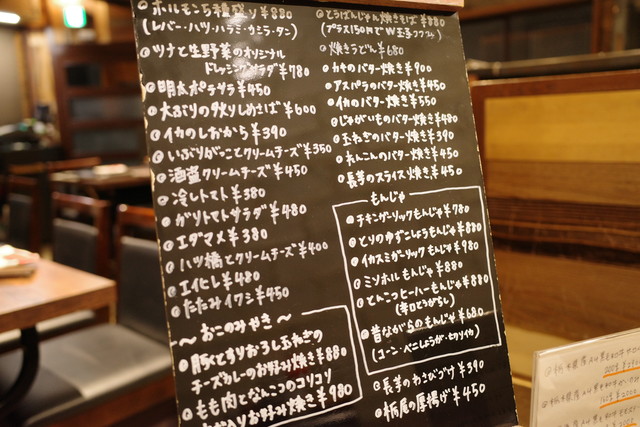 ホルモン5種盛り ¥880
(レバー・ハツ・ハラミ・カシラ・タン)
ツナと生野菜のオリジナル
ドレッシングサラダ ¥780
明太ポテサラ ¥450
大ぶりの炙りしめさば ¥600
イカのしおから ¥390
いぶりがっことクリームチーズ ¥350
酒盗クリームチーズ ¥450
冷しトマト ¥380
ガリトマトサラダ ¥480
エダマメ ¥380
八ツ橋とクリームチーズ ¥400
エイヒレ ¥480
たたみイワシ ¥450
〜おこのみやき〜
豚とすりおろし玉ねぎの
チーズカレーのお好み焼き ¥880
もも肉となんこつのコリコリ
お好み焼き ¥980
とうばんじゃん焼きそば ¥880
(プラス150円でW玉子
焼きうどん ¥680
カキのバター焼き ¥900
アスパラのバター焼き ¥450
イカのバター焼き ¥550
じゃがいものバター焼き ¥480
玉ねぎのバター焼き ¥390
れんこんのバター焼き ¥450
長芋のスライス焼き ¥450
もんじゃ
チキンガーリックもんじゃ ¥780
とりのゆずこしょうもんじゃ ¥880
イカスミガーリックもんじゃ ¥980
ミソホルもんじゃ ¥880
とんこつヒーハーもんじゃ ¥880
(辛口とうがらし)
昔ながらのもんじゃ ¥680
(コーン・ベニしょうが・切りイカ)
長芋のわさびづけ ¥390
栃尾の厚揚げ ¥450